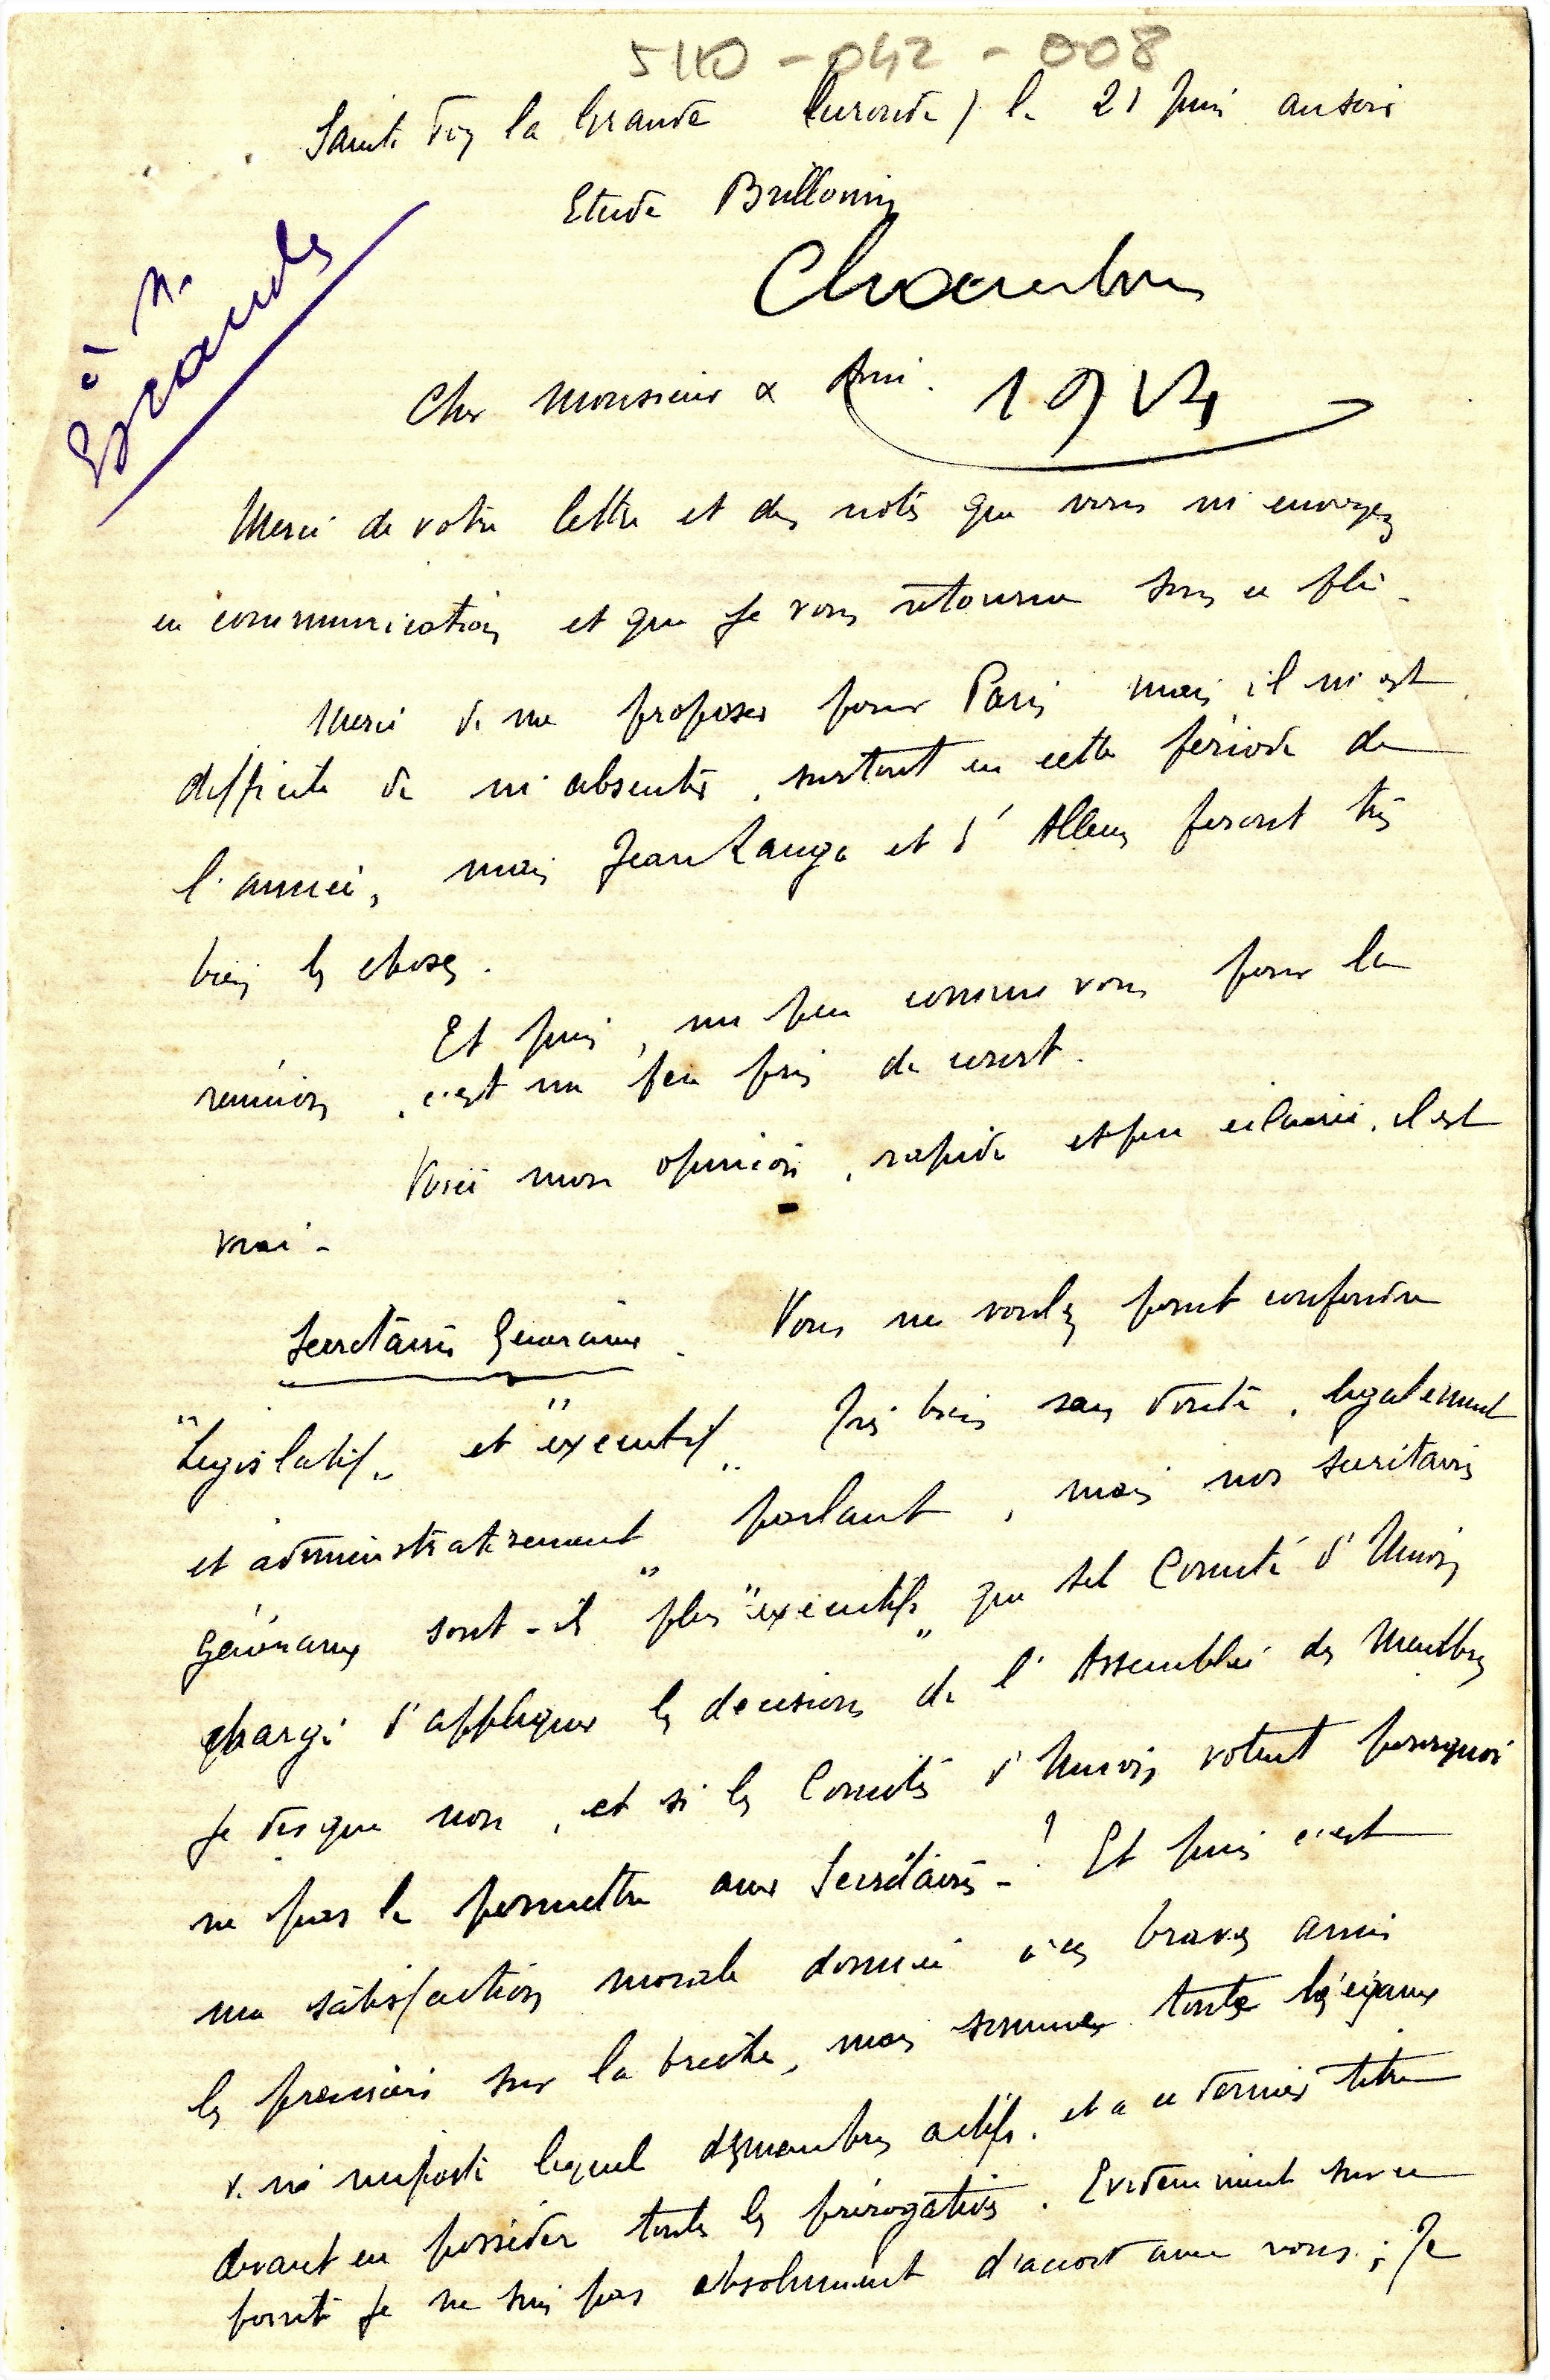 5110-042-008
Sainte Foy la Grande Gironde) le 21 Juin au soir
Etude Brillouin
à M.
Escande
Cher Monsieur & Ami.
Merci de votre lettre et des notes que vous m'envoyez
en communication et que je vous retourne sous ce pli -
Merci de me proposer pour Paris mais il m'est
difficile de m'absenter, surtout en cette période de
l'année, mais Jean Lauga et d'Allens feront très
bien les choses.
Et puis, un peu comme vous pour la
réunion, c'est un peu pris de court.
Voici mon opinion, rapide et peu éclairée, il est
vrai -
Secretaires Generaux. Vous ne voulez point confondre
"Legislatif" et "executif" Très bien sans doute, legalement
et administrativement parlant, mais nos secrétaires
généraux sont-ils plus "executifs" que tel Comité d'Union
chargé d'appliquer les decisions de l'Assemblée des Membres
Je dis que non, et si les Comités d'Union votent pourquoi
ne pas le permettre aux Secrétaires - ? Et puis c'est
une satisfaction morale donnée à ces braves amis
les premiers sur la brèche, mais sommes toute les égaux
de n'importe lequel des membres actifs, et a ce dernier titre
devant en posséder toutes les prérogatives. Evidemment sur ce
point je ne suis pas absolument d'accord avec vous ; Je